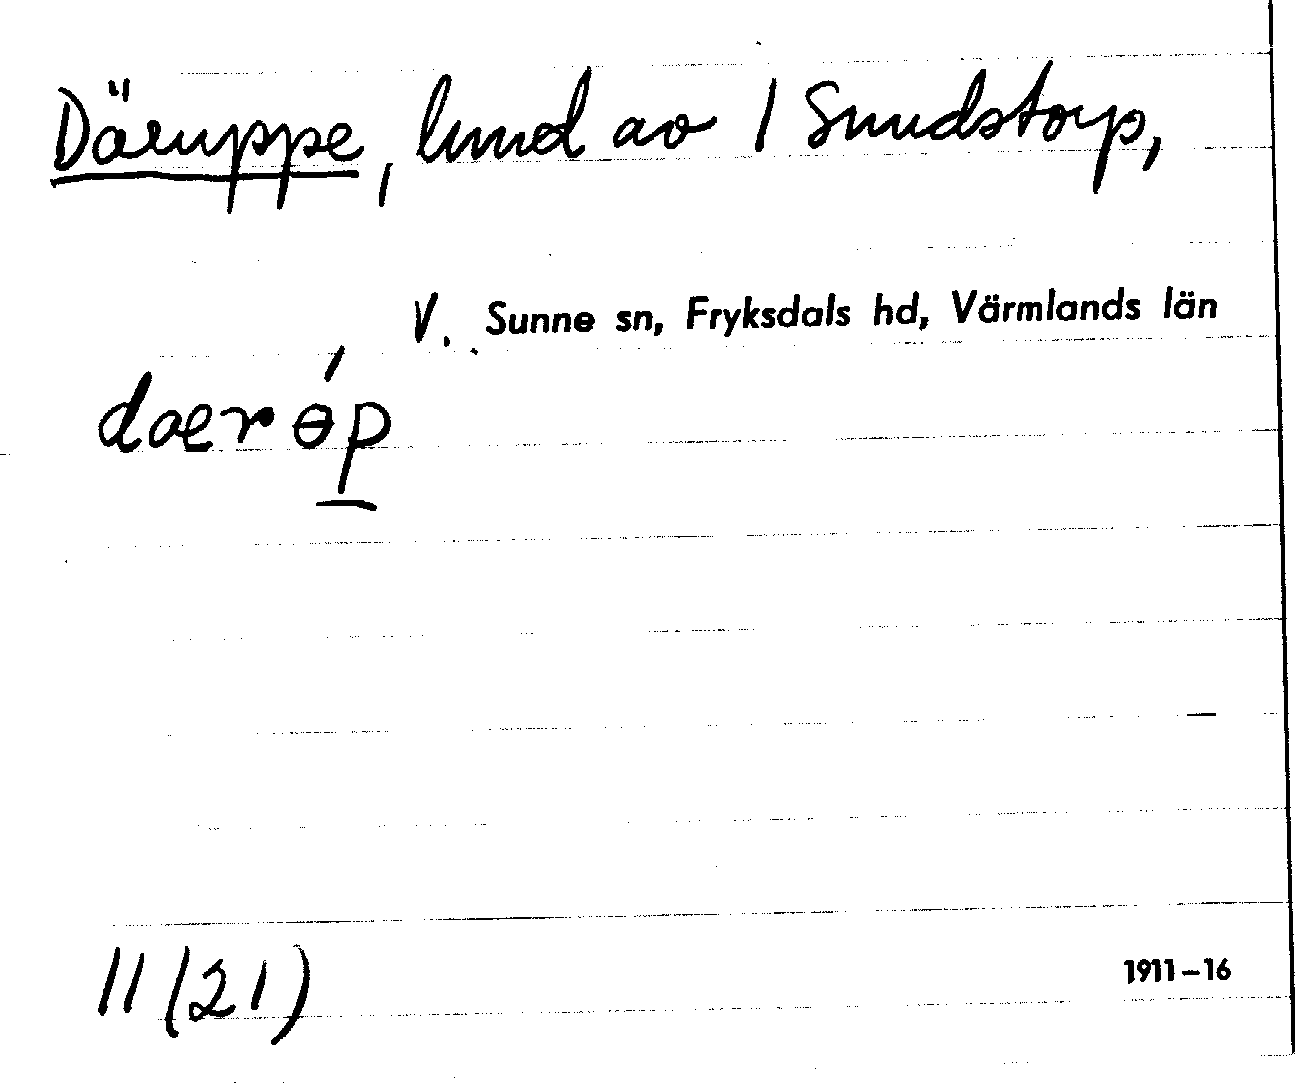 Däruppe, lund av 1 Sundstorp,
V. Sunne sn, Fryksdals hd, Värmlands län
daerɵ́p
11(21)
1911-16